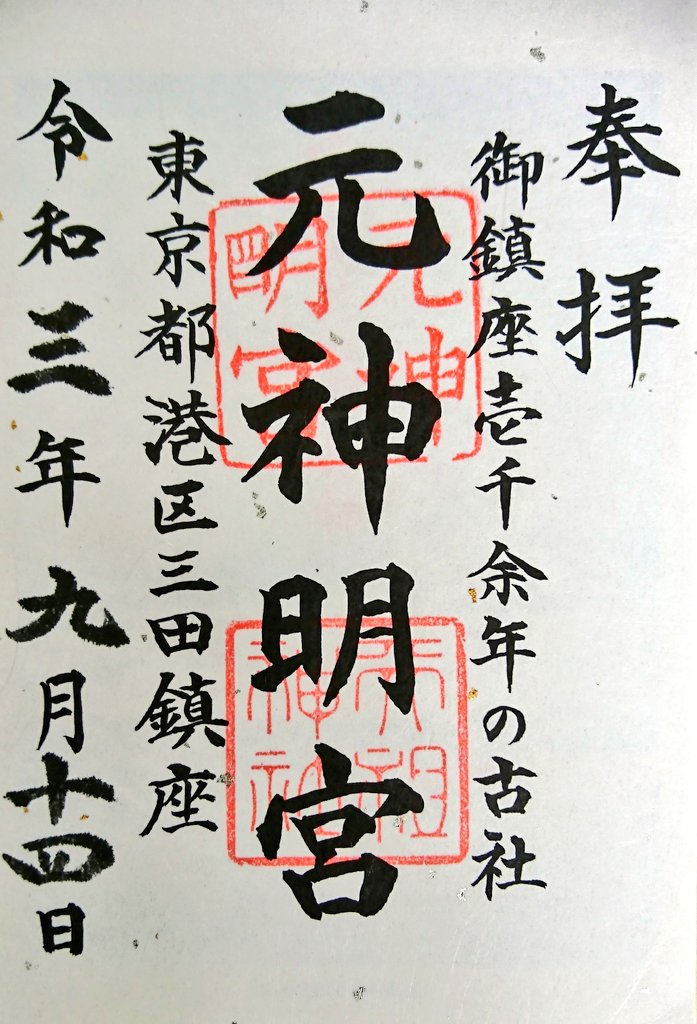 奉拝
御鎮座壱千余年の古社
元神明宮
元神明宮
東京都港区三田鎮座
令和三年九月十四日